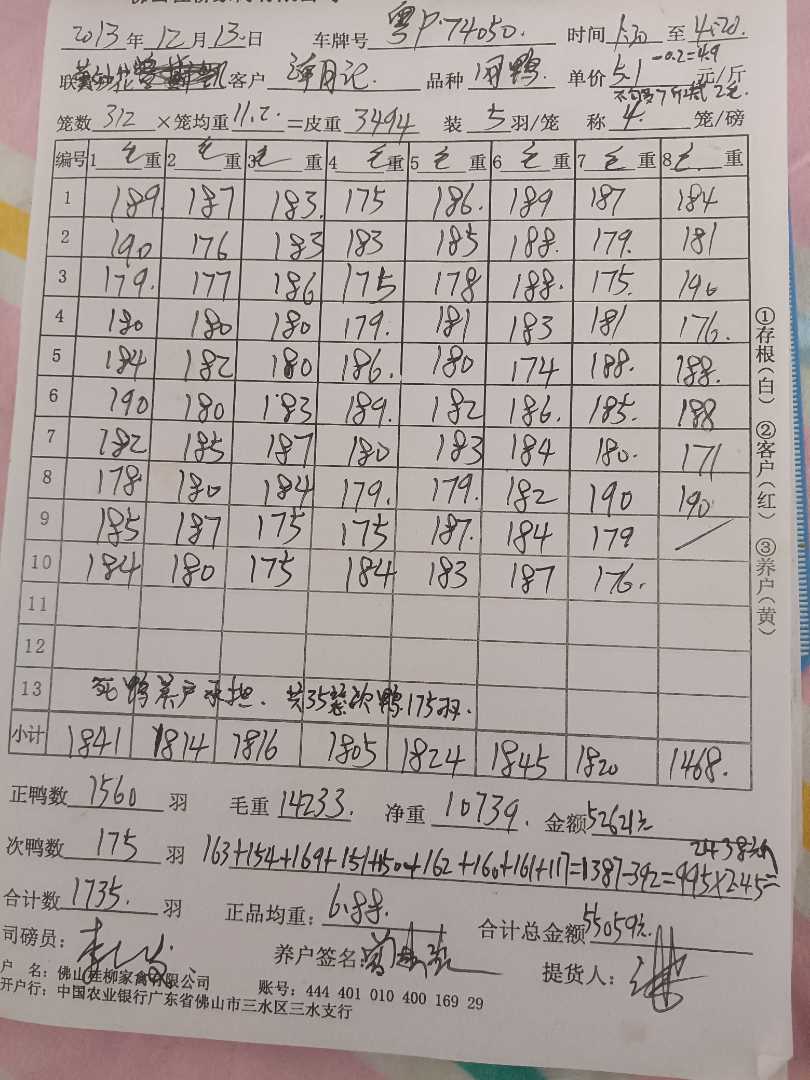 2013年12月13日 车牌号 粤P.74050. 时间 1:30 至 4:20.
联 客户 记. 品种 鸭 单价 5.1 -0.2=4.9 元/斤
笼数 312 ×笼均重 11.2 =皮重 3494 装 5 羽/笼 称 4. 笼/磅
编号 1 毛重 2 毛重 3 毛重 4 毛重 5 毛重 6 毛重 7 毛重 8 毛重
1 189. 187 183. 175 186. 189 187 184
2 190 176 183 183 185 188. 179. 181
3 179. 177 186 175 178 188. 175. 190
4 180 180 180 179. 181 183 181 176.
5 184 182 180 186. 180 174 188. 188.
6 190 180 183 189. 182 186. 185. 188
7 182 185 187 180 183 184 180. 171
8 178 180 184 179. 179. 182 190 190
9 185 187 175 175 187. 184 179 /
10 184 180 175 184 183 187 176.
11
12
13 死鸭养户承担. 共35笼次鸭175羽.
小计 1841 1814 1816 1805 1824 1845 1820 1468.
①存根(白) ②客户(红) ③养户(黄)
正鸭数 1560 羽 毛重 14233. 净重 10739. 金额 52621元
2438元
次鸭数 175 羽 163+154+169+151+150+162+160+161+117=1387-392=995×2.45=
合计数 1735. 羽 正品均重: 6.88. 合计总金额 55059元.
司磅员: 养户签名: 提货人:
户 名: 佛山桂柳家禽有限公司 账号: 444 401 010 400 169 29
开户行: 中国农业银行广东省佛山市三水区三水支行